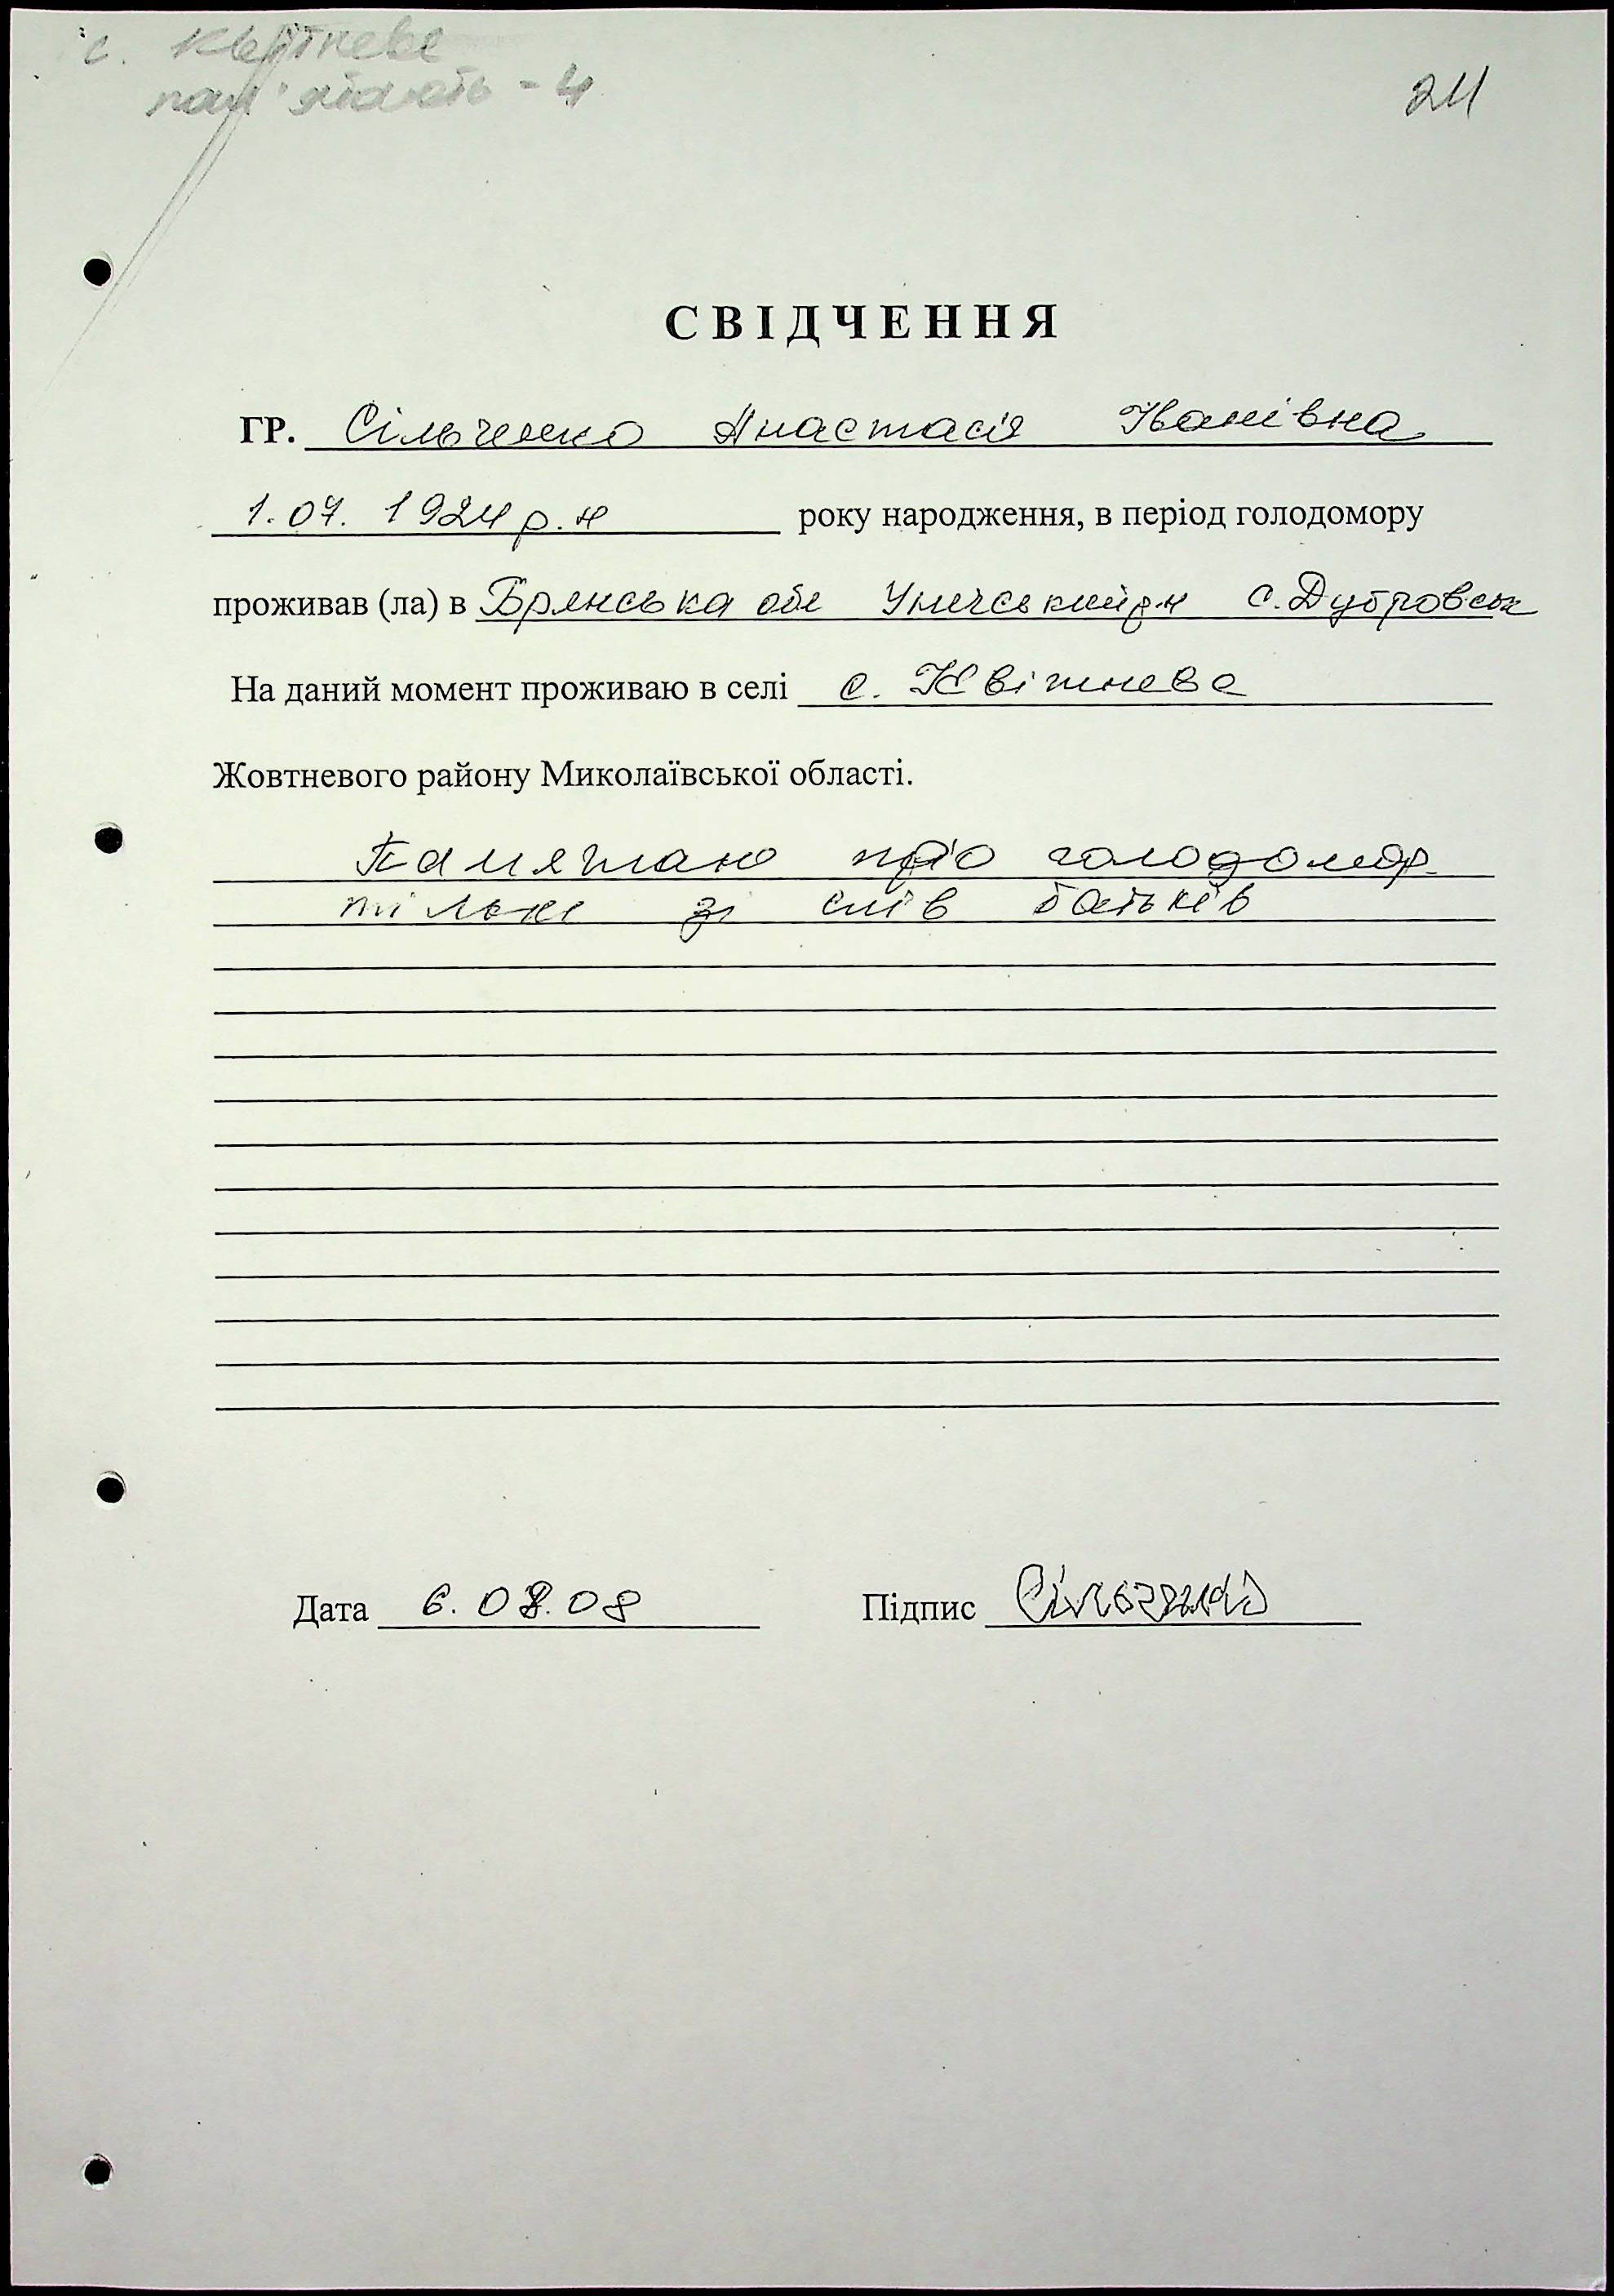 с. Квітневе
пам'ятають - 4
24
СВІДЧЕННЯ
ГР. Сільченко Анастасія Іванівна
1.07.1924 р.н року народження, в період голодомору
проживав (ла) в Брянська обл Унечський р-н с. Дубровськ
На даний момент проживаю в селі с. Квітнева
Жовтневого району Миколаївської області.
Памятаю про голодомор
тільки зі слів батьків
Дата 6.08.08 Підпис